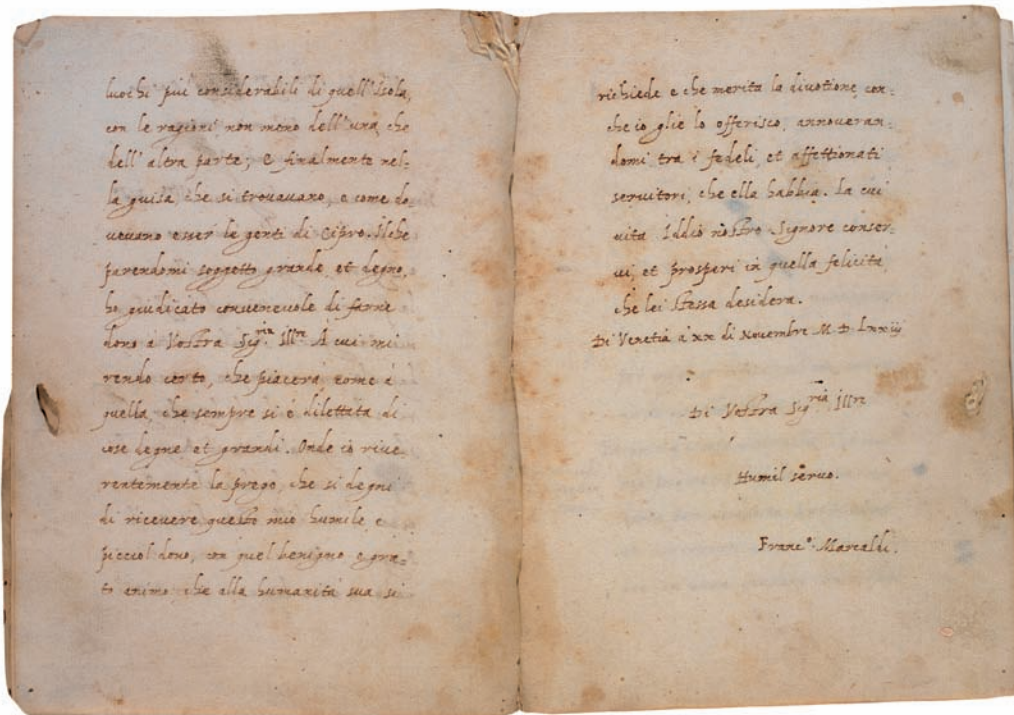 luochi piú considerabili di quell'Isola,
con le ragioni non meno dell'una che
dell'altra parte; e finalmente nel-
la guisa, che si trouauano, e come do-
ueuano esser le genti di Cipro. Ilche
parendomi soggetto grande, et degno,
ho giudicato conueneuole di farne
dono á Vostra Sig.ria Ill.re Á cui mi
rendo certo, che piacerá, come á
quella, che sempre si é dilettata di
cose degne et grandi. Onde io riue-
rentemente la prego, che si degni
di riceuere questo mio humile e
picciol dono, con quel benigno e gra-
to animo che alla humanitá sua si
richiede e che merita la diuotione con-
che io glie lo offerisco, annoueran-
domi tra i fedeli, et affettionati
seruitori, che ella habbia. La cui
vita Iddio nostro Signore conser-
ui, et prosperi in quella felicitá
che lei stessa desidera.
Di Venetia á xx di Nouembre M. D. Lxxiij
Di Vostra Sig.ria Ill.re
Humil seruo.
Franc.o Marcaldi.